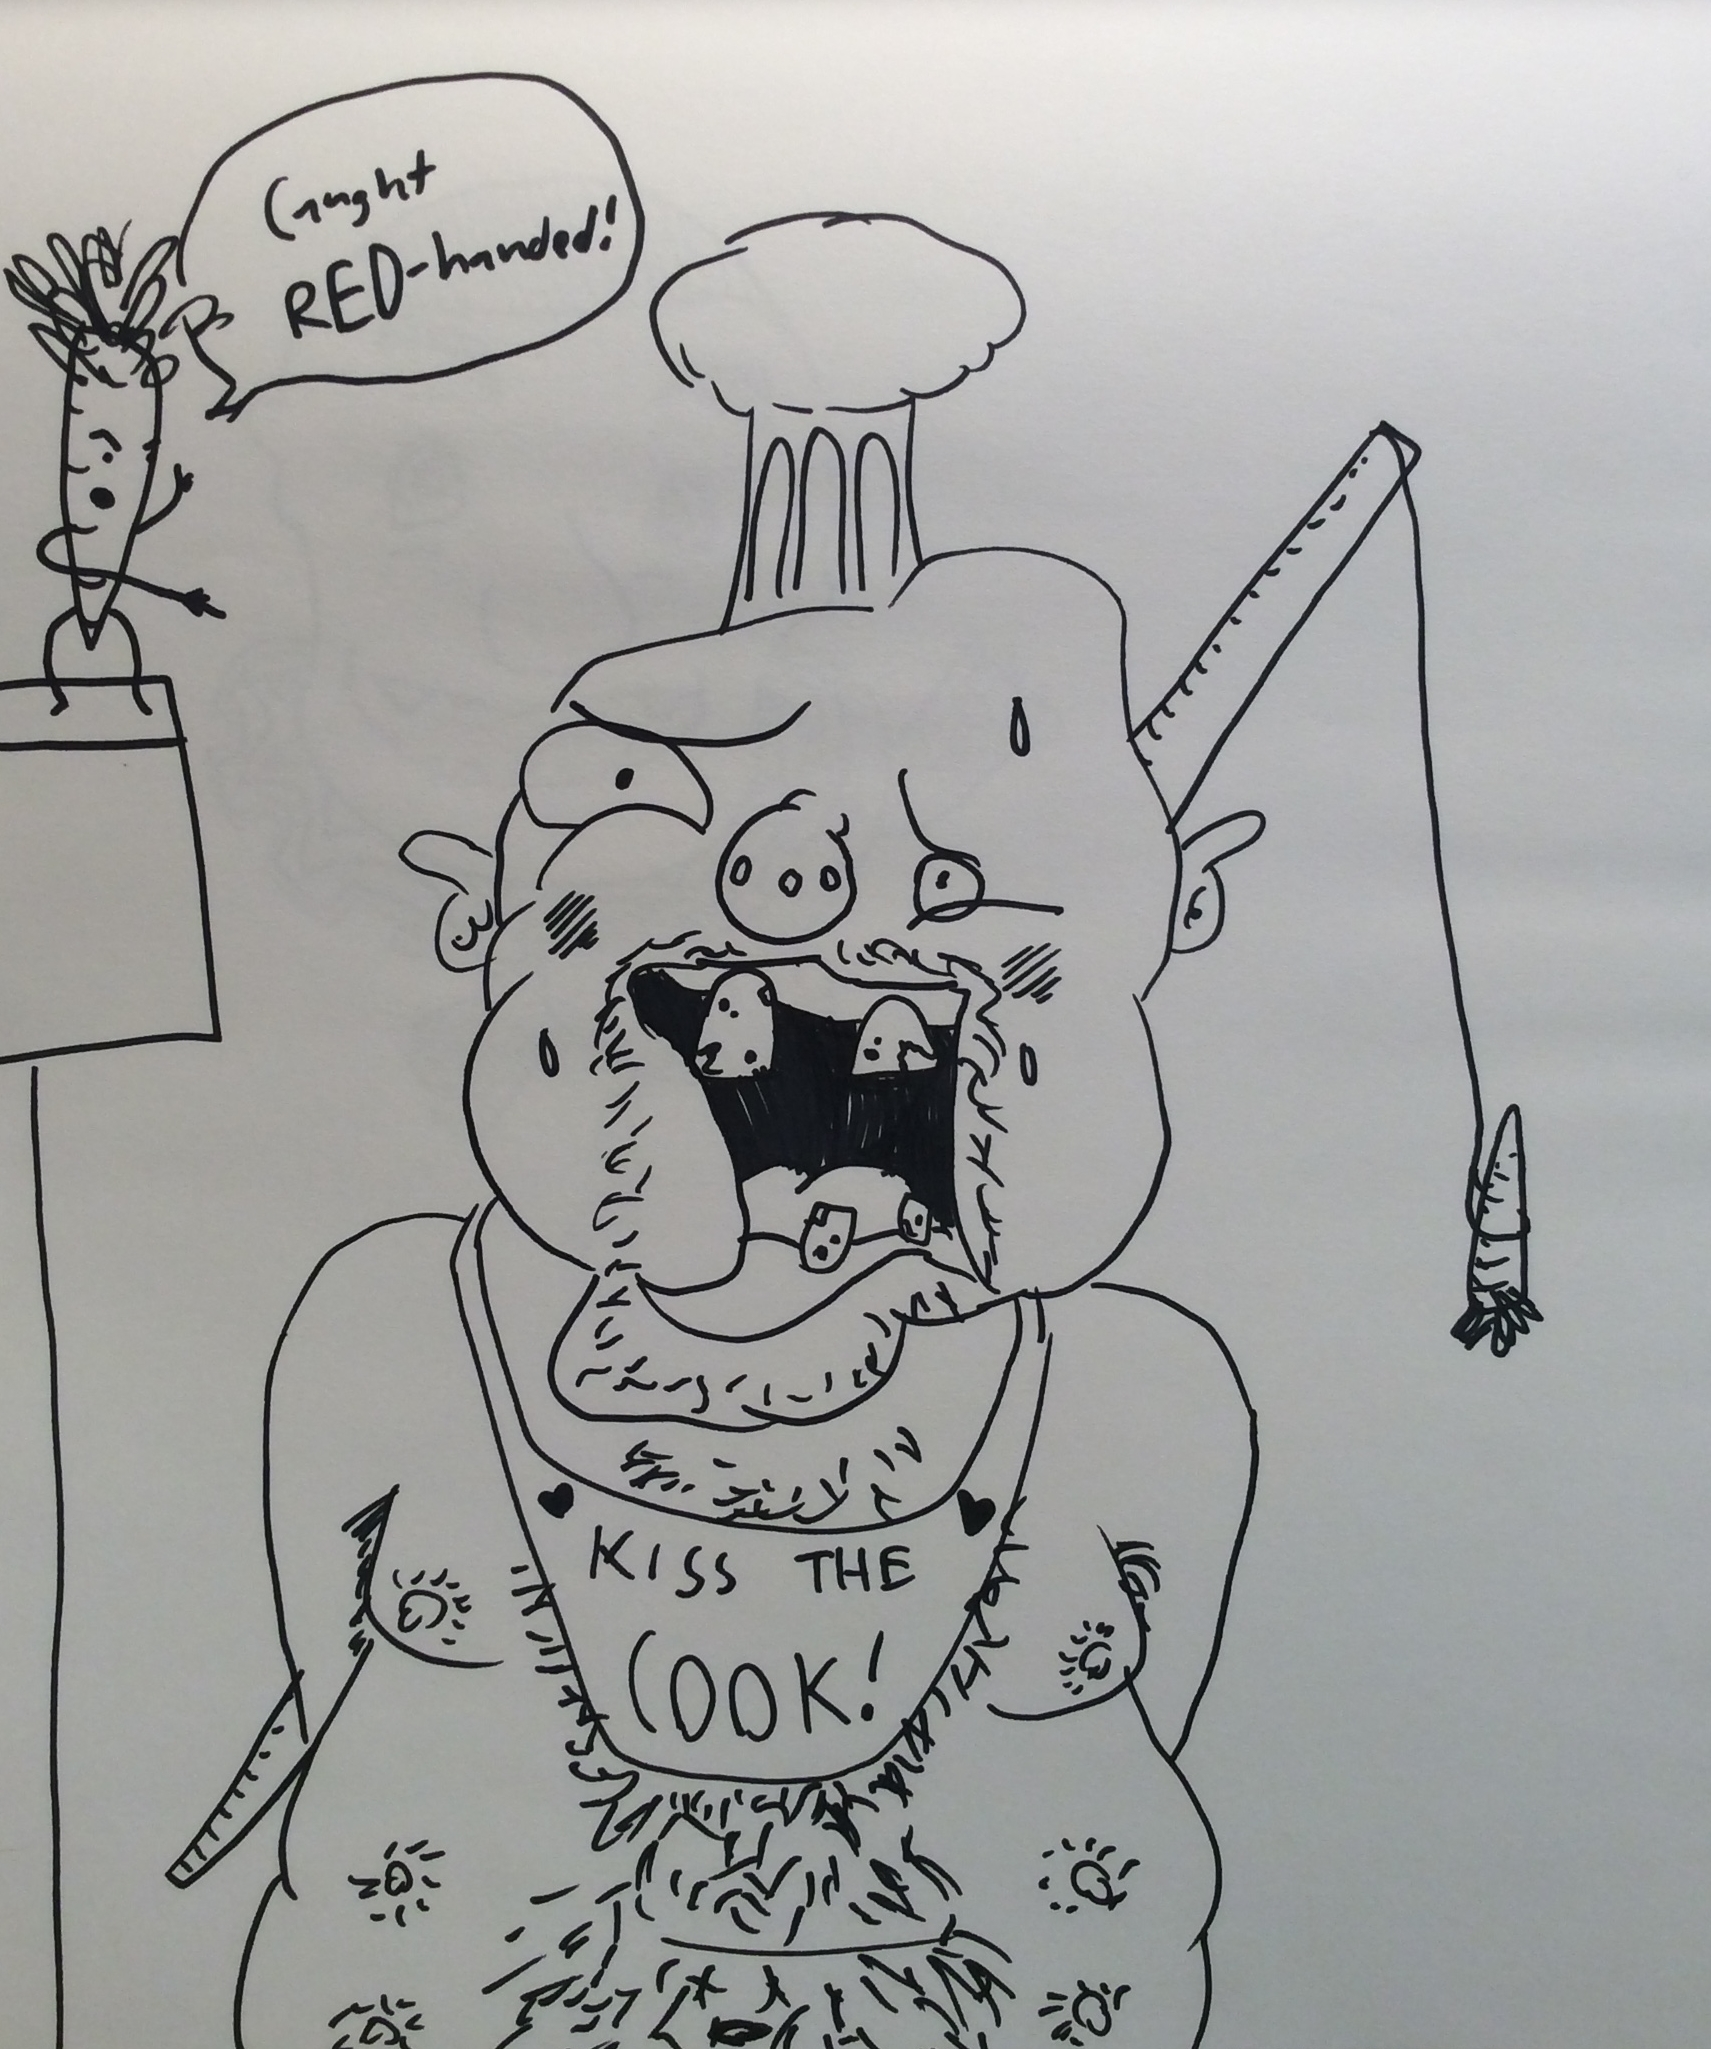 Caught
RED-handed!
KISS THE
COOK!